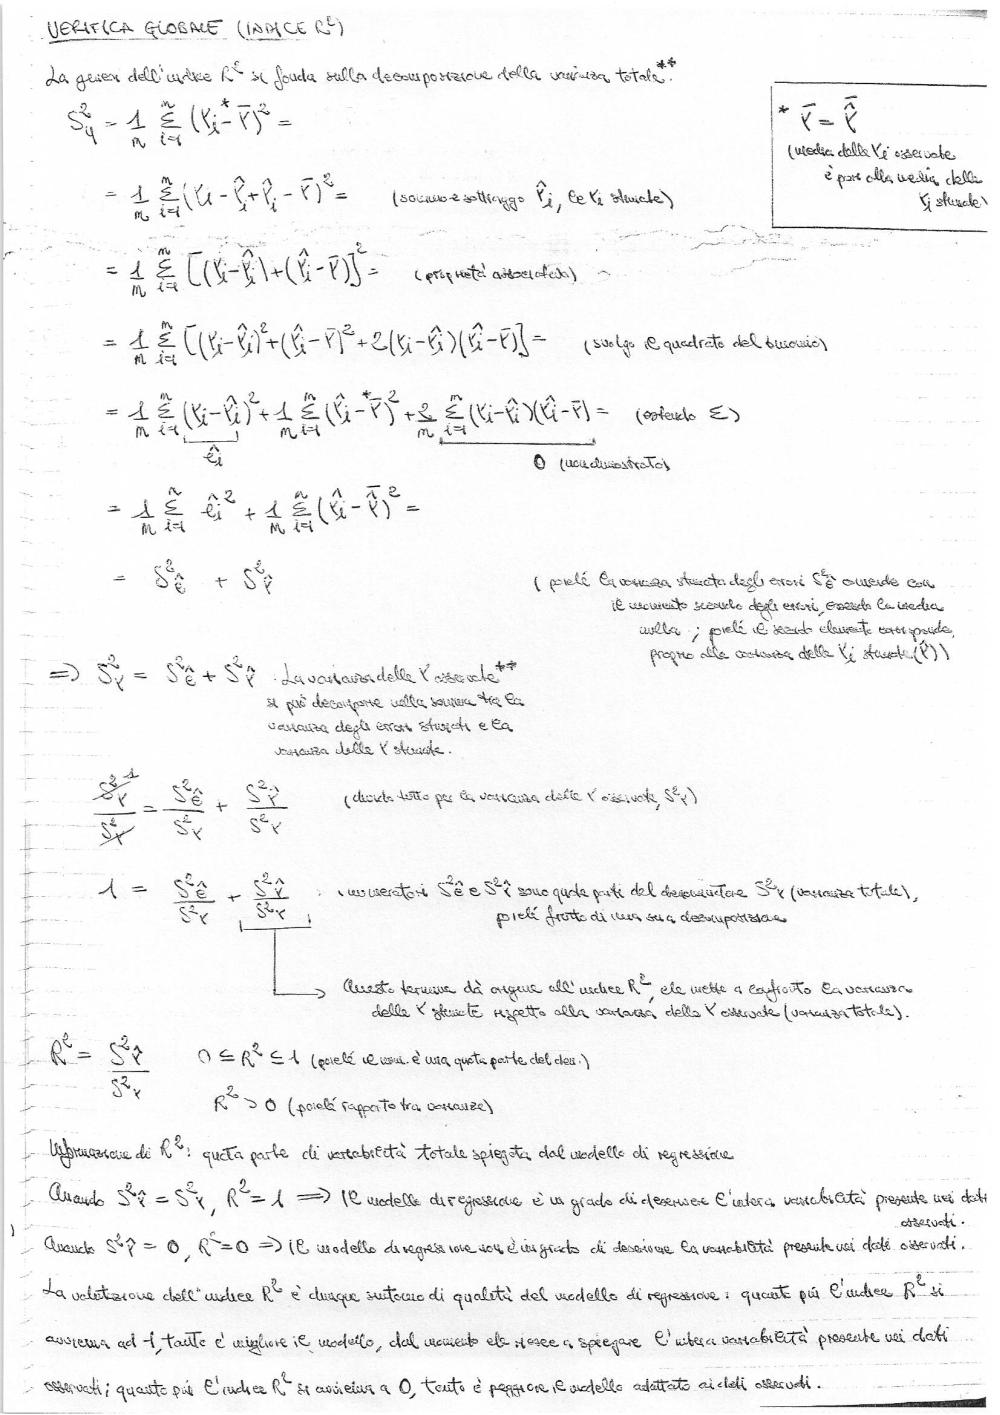 VERIFICA GLOBALE (INDICE R²)
La genesi dell'indice R² si fonda sulla decomposizione della varianza totale**.
S²y = 1/n Σ(i=1→n) (Yi* - Ȳ)² =
* Ȳ = Ŷ̄
(media delle Yi osservate
è pari alla media delle
Yi stimate)
= 1/n Σ(i=1→n) (Yi - Ŷi + Ŷi - Ȳ)² = (sommo e sottraggo Ŷi, le Yi stimate)
= 1/n Σ(i=1→n) [(Yi - Ŷi) + (Ŷi - Ȳ)]² = (proprietà associativa)
= 1/n Σ(i=1→n) [(Yi - Ŷi)² + (Ŷi - Ȳ)² + 2(Yi - Ŷi)(Ŷi - Ȳ)] = (svolgo il quadrato del binomio)
= 1/n Σ(i=1→n) (Yi - Ŷi)² + 1/n Σ(i=1→n) (Ŷi - Ȳ*)² + 2/n Σ(i=1→n) (Yi - Ŷi)(Ŷi - Ȳ) = (estendo Σ)
êi
0 (non dimostrato)
= 1/n Σ(i=1→n) êi² + 1/n Σ(i=1→n) (Ŷi - Ŷ̄)² =
= S²ê + S²Ŷ
(poiché la varianza stimata degli errori S²ê coincide con
il momento secondo degli errori, essendo la media
nulla; poiché il secondo elemento corrisponde
proprio alla varianza delle Yi stimate (Ŷ))
=> S²Y = S²ê + S²Ŷ. La varianza delle Y osservate**
si può decomporre nella somma tra la
varianza degli errori stimati e la
varianza delle Y stimate.
S²Y/S²Y 1 = S²ê/S²Y + S²Ŷ/S²Y (divido tutto per la varianza delle Y osservate, S²Y)
1 = S²ê/S²Y + S²Ŷ/S²Y : i numeratori S²ê e S²Ŷ sono quote parti del denominatore S²Y (varianza totale),
poiché frutto di una sua decomposizione
Questo termine dà origine all'indice R², che mette a confronto la varianza
delle Y stimate rispetto alla varianza delle Y osservate (varianza totale).
R² = S²Ŷ/S²Y 0 ≤ R² ≤ 1 (poiché il num. è una quota parte del den.)
R² > 0 (poiché rapporto tra varianze)
Informazione di R²: quota parte di variabilità totale spiegata dal modello di regressione
Quando S²Ŷ = S²Y, R² = 1 => il modello di regressione è in grado di descrivere l'intera variabilità presente nei dati
osservati.
Quando S²Ŷ = 0, R² = 0 => il modello di regressione non è in grado di descrivere la variabilità presente nei dati osservati.
La valutazione dell'indice R² è dunque sintomo di qualità del modello di regressione: quanto più l'indice R² si
avvicina ad 1, tanto è migliore il modello, dal momento che riesce a spiegare l'intera variabilità presente nei dati
osservati; quanto più l'indice R² si avvicina a 0, tanto è peggiore il modello adattato ai dati osservati.